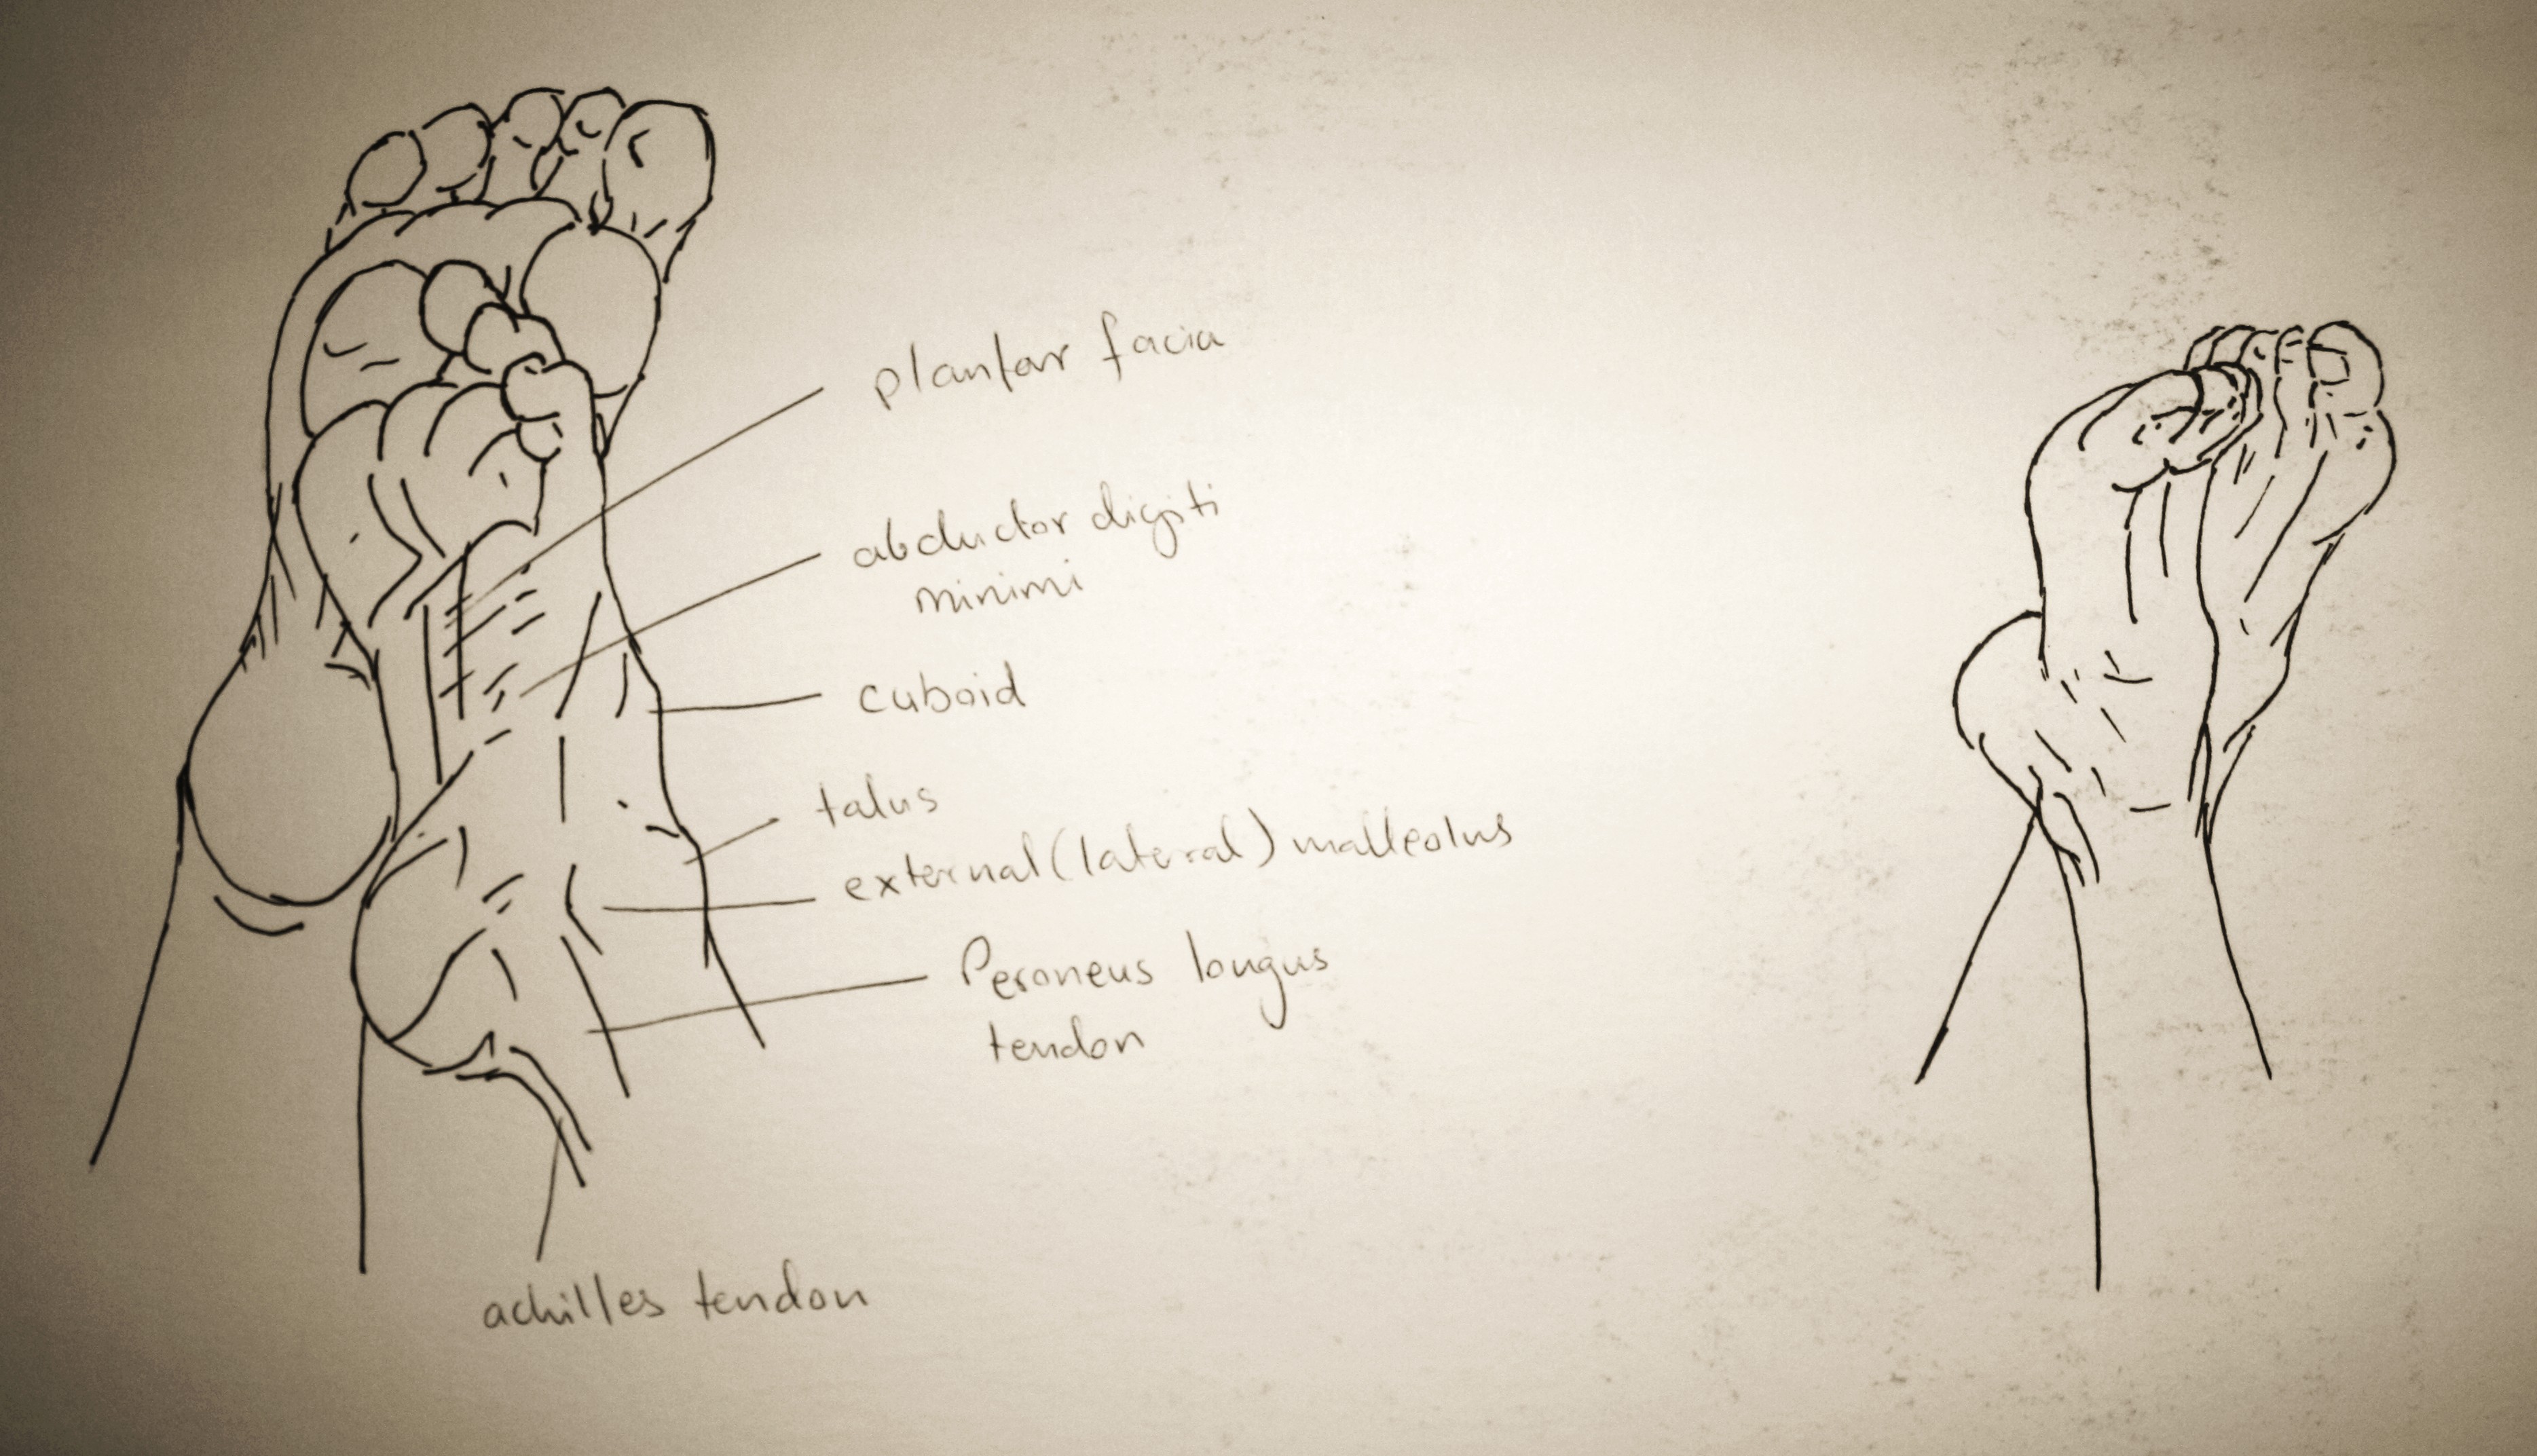 plantar facia
abductor digiti
minimi
cuboid
talus
external (lateral) malleolus
Peroneus longus
tendon
achilles tendon